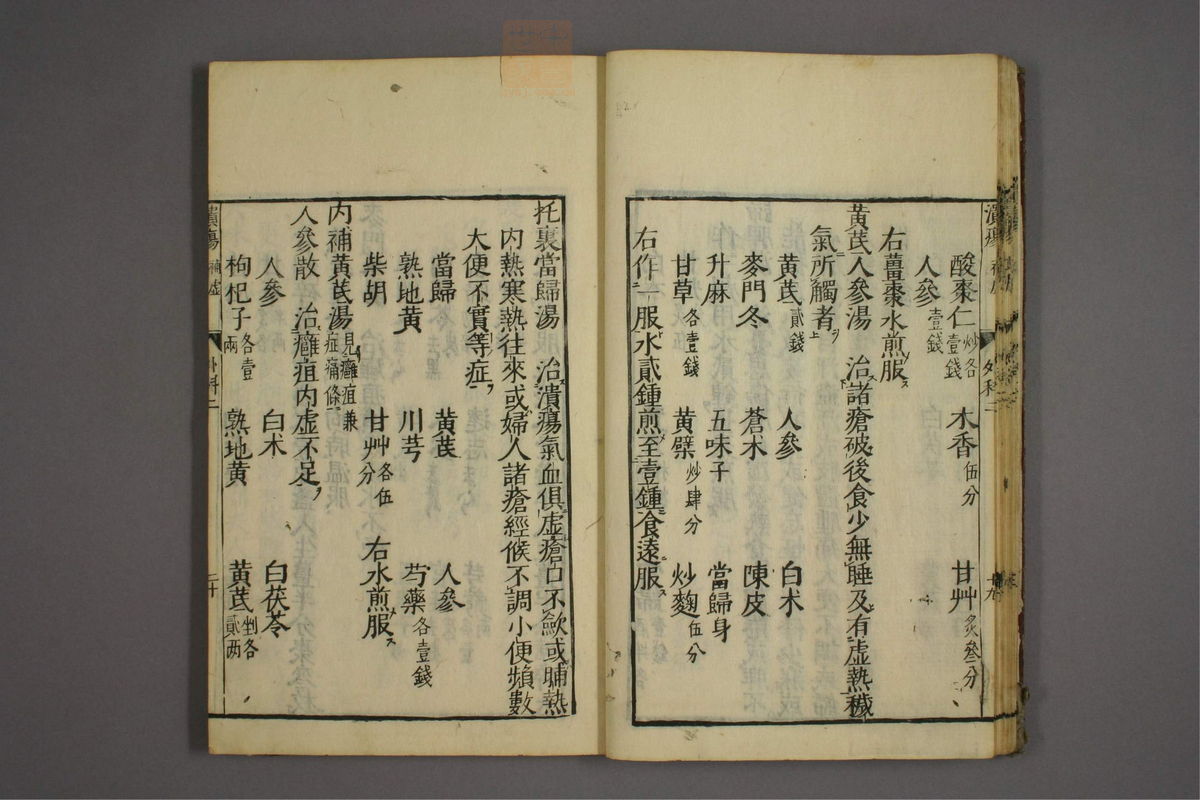 酸棗仁炒各壹錢 木香伍分 甘艸炙叄分
人參壹錢
右薑棗水煎服
黃芪人參湯 治諸瘡破後食少無睡及有虛熱穢
氣所觸者
黃芪貳錢 人參 白朮
麥門冬 蒼朮 陳皮
升麻 五味子 當歸身
甘草各壹錢 黃檗炒肆分 炒麴伍分
右作一服水貳鍾煎至壹鍾食遠服
托裏當歸湯 治潰瘍氣血俱虛瘡口不歛或晡熱
內熱寒熱往來或婦人諸瘡經候不調小便頻數
大便不實等症
當歸 黃芪 人參
熟地黃 川芎 芍藥各壹錢
柴胡 甘艸各伍分 右水煎服
內補黃芪湯見癰疽兼症痛條
人參散 治癰疽內虛不足
人參 白朮 白茯苓
枸杞子各壹兩 熟地黃 黃芪剉各貳兩
潰瘍 補虛 外科二 二十